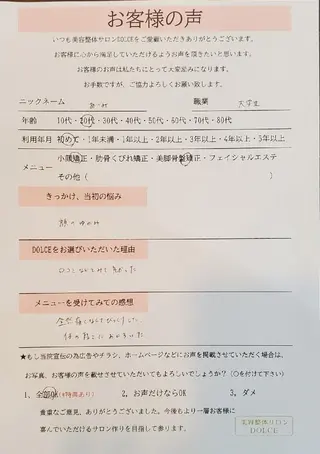 お客様の声
いつも美容整体サロンDOLCEをご愛顧いただきありがとうございます。
お客様に心から満足していただけるようお声を頂きたいと思います。
お客様のお声は私たちにとって大変励みになります。
お手数ですが、ご協力よろしくお願い致します。
ニックネーム 職業 大学生
年齢 10代・20代・30代・40代・50代・60代・70代・80代
利用年月 初めて・1年未満・1年以上・2年以上・3年以上・4年以上・5年以上
メニュー 小顔矯正・肋骨くびれ矯正・美脚骨盤矯正・フェイシャルエステ
その他（ ）
きっかけ、当初の悩み
顔のゆがみ
DOLCEをお選びいただいた理由
メニューを受けてみての感想
全然痛くなくてびっくりした
★もし当院宣伝の為広告やチラシ、ホームページなどにお声を掲載させていただく場合は、
お写真、お客様の声を載せさせていただいてもよろしいでしょうか？（○を付けて下さい）
1、全部OK（※特典あり） 2、お声だけならOK 3、ダメ
貴重なご意見、ありがとうございました。今後もより一層お客様に
喜んでいただけるサロン作りを目指して参ります。
美容整体サロン
DOLCE